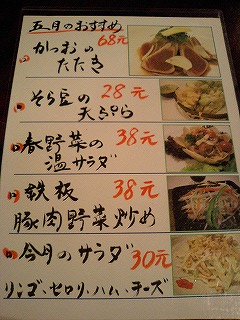 五月のおすすめ
かつおの 68元
たたき
そら豆の 28元
天ぷら
春野菜の 38元
温サラダ
鉄板 38元
豚肉野菜炒め
今月のサラダ
30元
リンゴ、セロリ、ハム、チーズ